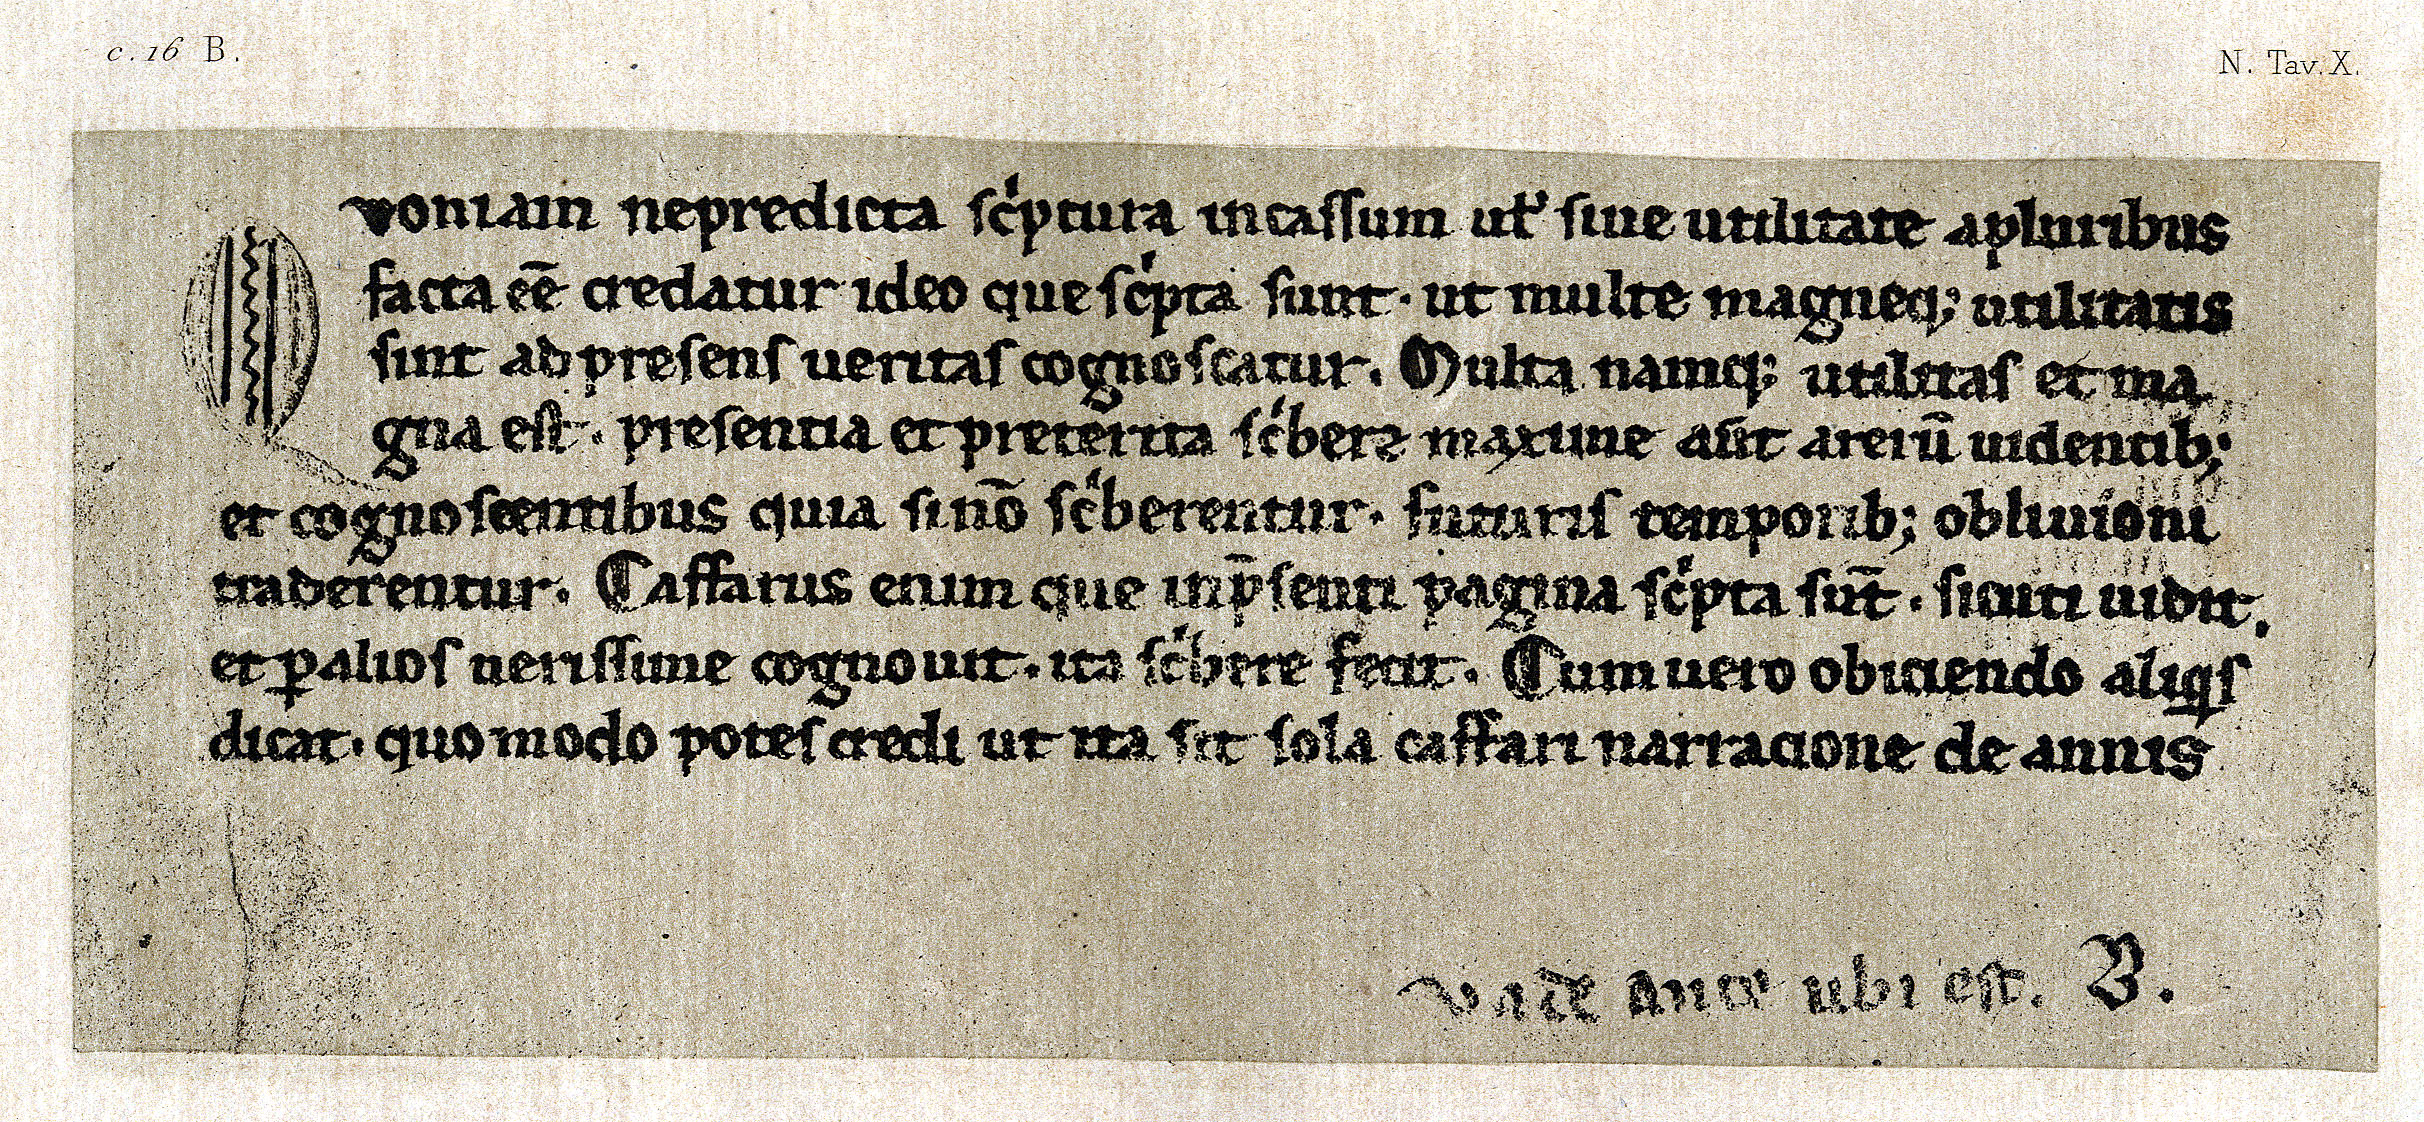 c. 16 B.
N. Tav. X.
Qvoniam ne predicta sc'ptura in cassum ul' siue utilitate a pluribus
facta eē credatur ideo que sc'pta sunt · ut multe magneq; utilitatis
sint ad presens ueritas cognoscatur. Multa namq; utilitas et ma
gna est · presentia et preterita sc'bere maxime aūt a reiū uidentib;
et cognoscentibus quia si nō sc'berentur · futuris temporib; obliuioni
traderentur. Caffarus enim que in p̄senti pagina sc'pta sūt · sicuti uidit.
et ꝑ alios uerissime cognouit · ita sc'bere fecit. Cum uero obiciendo aliq̄s
dicat · quo modo potes credi ut ita sit sola caffari narracione de annis
ubi est. B.